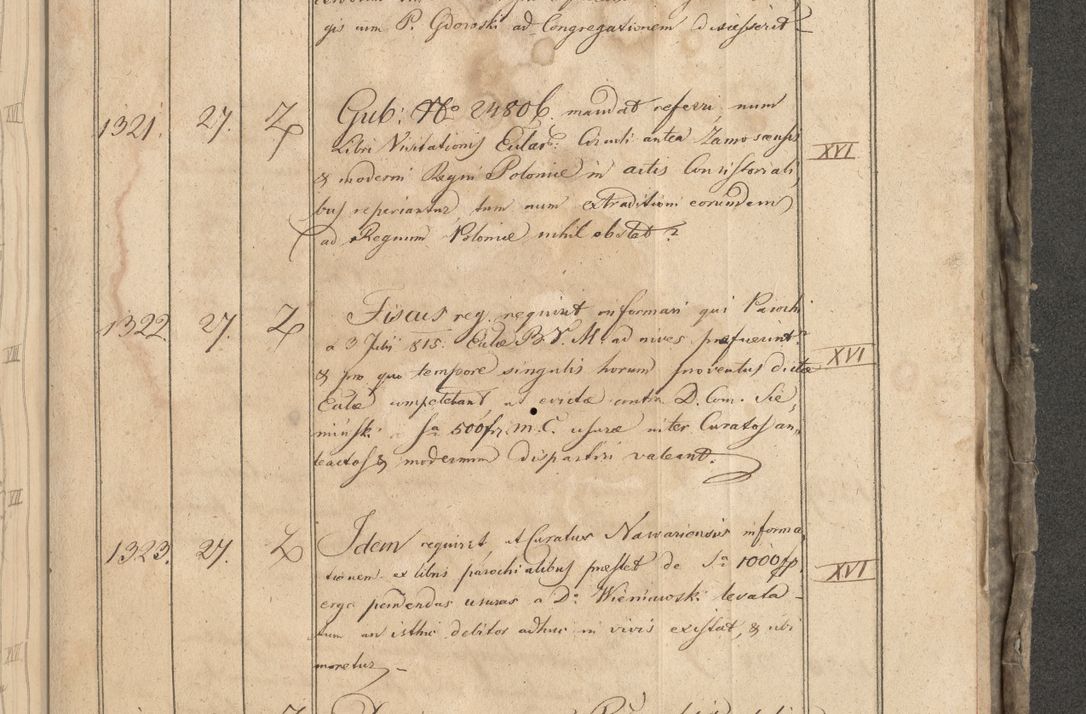 gis cum P. Gdowski ad Congregationem discesserit
1321. 27. Z Gub: No 24806. mandat referri, num
Libri Visitationis Eclar: Circuli antea Zamoscensis XVI
& moderni Regni Poloniæ in actis Consistoriali,
bus reperiantur, tum num extraditioni eorundem
ad Regnum Poloniæ nihil obstat?
1322. 27. Z Fiscus reg. requirit informari qui Parochi
a 3 Julii 815. Eclæ B. V. M. ad nives præfuerint? XVI
& pro quo tempore singulis horum proventus dictæ
Eclæ competebant ut evictæ contra D. Com. Sie,
mińsk. a Sa 500 fr. m. C. usuræ inter Curatos an,
teactos & modernum dispartiri valeant.
1323. 27. Z Idem requirit ut Curatus Nawariensis informa,
tionem ex libris parochialibus præstet de Sa 1000 fr. XVI
erga pendendas usuras a Do Wieniawski levata
tum an isthic debitor adhuc in vivis existat, & ubi
moretur